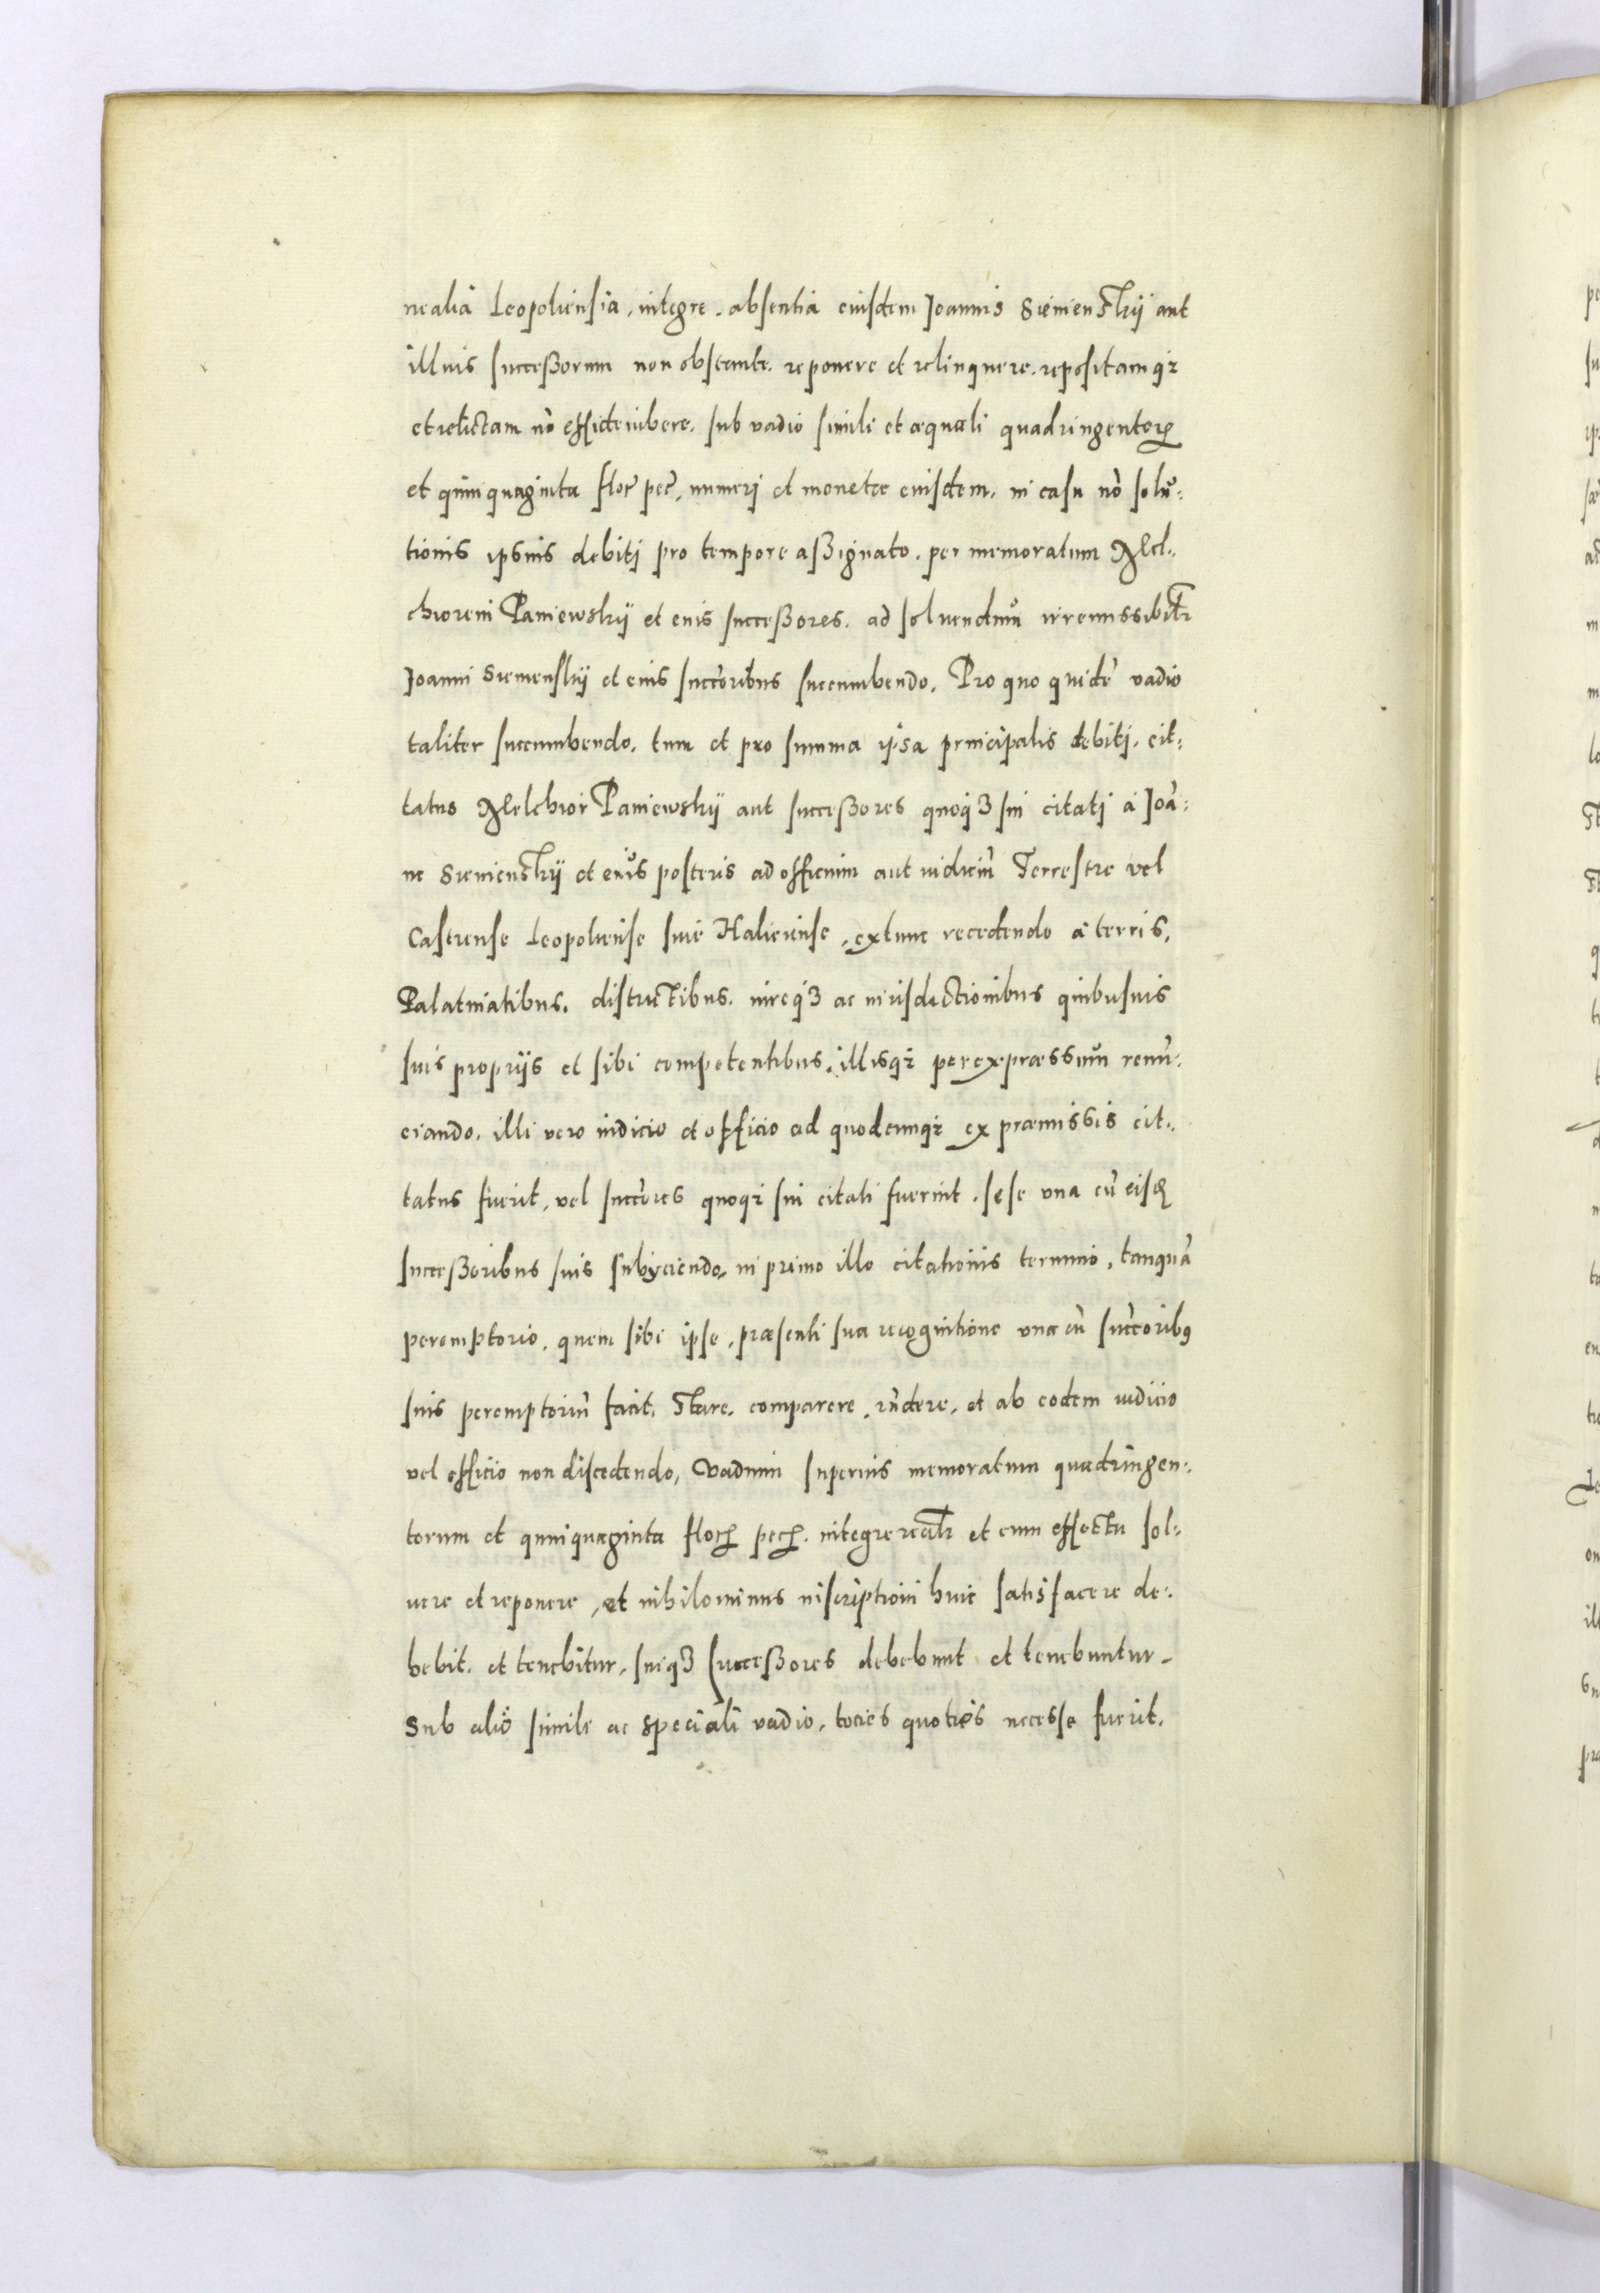 nealia Leopoliensia, integre, absentia eiusdem Joannis Siemienskij aut
illius successorum non obstante, reponere et relinquere, repositamqz
et relictam nõ effidemibere, sub vadio simili et æquali quadringentorꝝ
et quinquaginta floř peč, numerj et monetæ eiusdem, in casu nõ solu:
tionis ipsius debitj pro tempore assignato, per memoratum Mel:
chiorem Paniewskij et eius successores, ad soluendum irremissibilr
Joanni Siemienskij et eius succoribus succumbendo. Pro quo quidẽ vadio
taliter succumbendo, tum et pro summa ipsa principalis debitj, cit:
tatus Melchior Paniewskij aut successores quoq3 sui citatj à Joã:
ne Siemienskij et eius posteris ad officium aut iudiciũ Terrestre vel
Castrense Leopoliense siue Haliciense, extunc recedendo à terris,
Palatinatibus, districtibus, iureq3 ac iurisdictionibus quibusuis
suis proprijs et sibi competentibus, illisqz per expræssum renũ:
ciando, illi vero iudicio et officio ad quodcunqz ex præmissis cit:
tatus fuerit, vel succores quoqz sui citati fuerint, sese vna cũ eisdẽ
successoribus suis subyciendo, in primo illo citationis termino, tanquã
peremptorio, quem sibi ipse, præsenti sua recognitione vna cũ succoribꝰ
suis peremptoriũ facit, stare, comparere, rñdere, et ab eodem iudicio
vel officio non discedendo, Vadium superius memoratum quadringen:
torum et quinquaginta floꝝ pecꝝ, integre realr et cum effectu sol:
uere et reponere, et nihilominus inscriptioni huic satisfacere de:
bebit, et tenebitur, suiq3 successores debebunt et tenebuntur,
Sub alio simili ac speciali vadio, tocies quoties necesse fuerit,